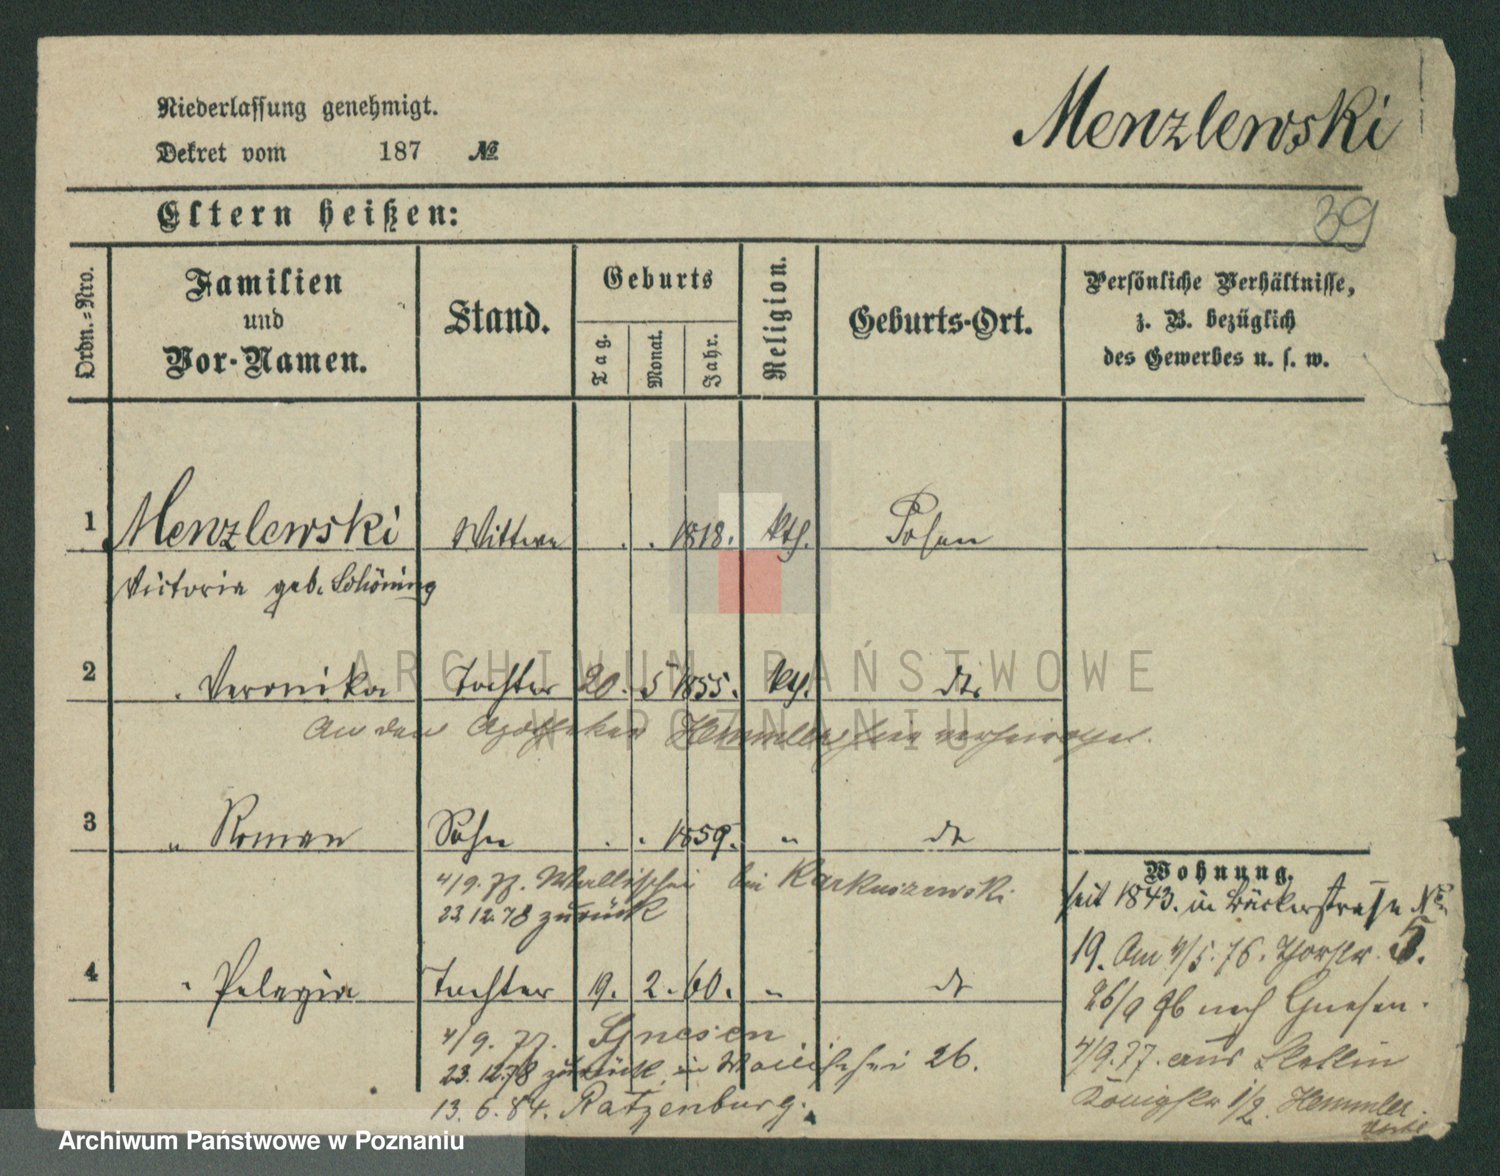 Niederlassung genehmigt.
Dekret vom 187 №
Menzlewski
39
Eltern heißen:
Ordn.-Nro.
Familien
und
Vor-Namen.
Stand.
Geburts
Tag.
Monat.
Jahr.
Religion.
Geburts-Ort.
Persönliche Verhältnisse,
z. B. bezüglich
des Gewerbes u. s. w.
1 Menzlewski Wittwe . . 1818. kth. Posen
Victoria geb. Schöning
2 . Veronika Tochter 20. 5 1855. kth. dto
An den Apotheker Hemmler verheirathet.
ARCHIWUM PAŃSTWOWE
W POZNANIU
3 „ Roman Sohn . . 1859. „ do
4/9. 77. Wallischei bei Karkuszewski
23.12.78 zurück
Wohnung.
seit 1843. in Bäckerstrasse No
19. Am 4/5. 76. Thorstr. 5.
26/9 76 nach Gnesen.
4/9.77. aus
Königstr 1/2. Hemmler
4 „ Pelagia Tochter 19. 2. 60. „ do
4/9. 77. Gnesen
23.12.78 zurück in Wallischei 26.
13. 6. 84. Ratzenburg.
Archiwum Państwowe w Poznaniu